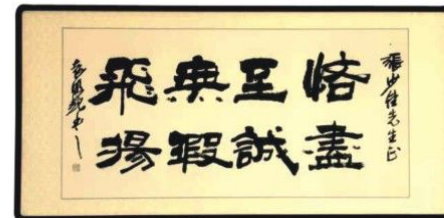 張少佳先生正
恪盡
至誠
無瑕
飛揚